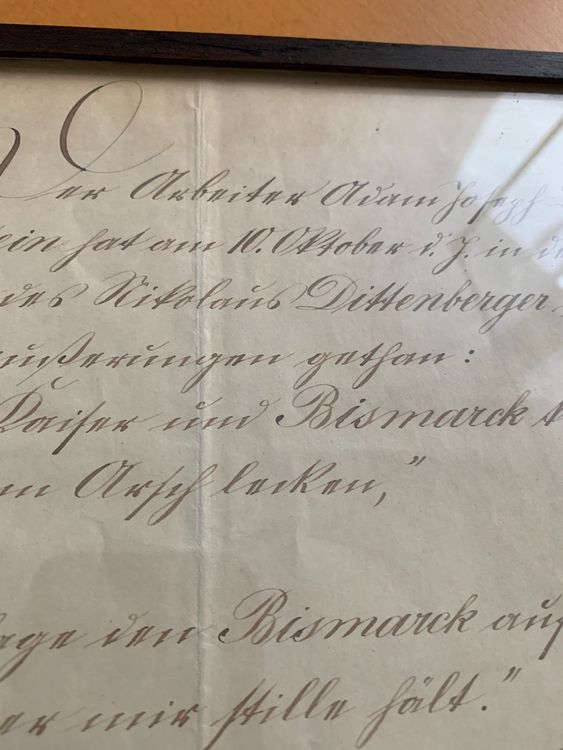 Der Arbeiter Adam Joseph
ein hat am 10. Oktober d. J. in d
des Nikolaus Dittenberger
ußerungen gethan:
Kaiser und Bismarck k
m Arsch lecken,"
age den Bismarck auf
er mir stille hält."